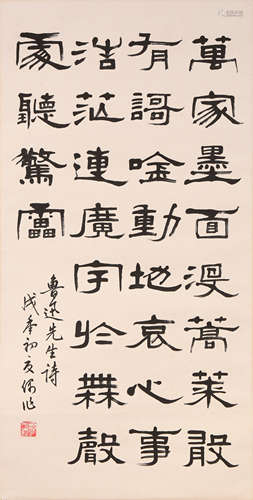 萬家墨面沒蒿萊敢
有謌唫動地哀心事
浩茫連廣宇於無聲
處聽驚靁
魯迅先生詩
戊初夏作